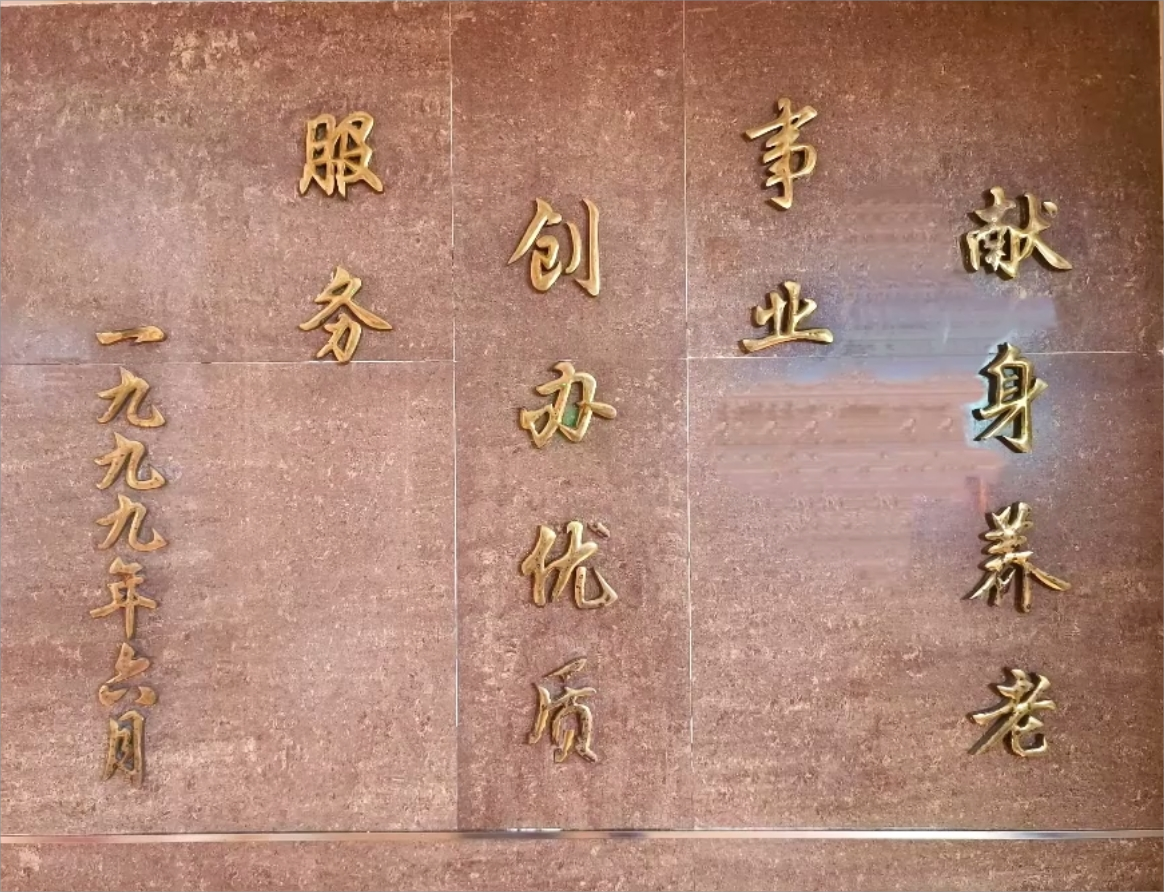 献身养老
事业
创办优质
服务
一九九九年六月